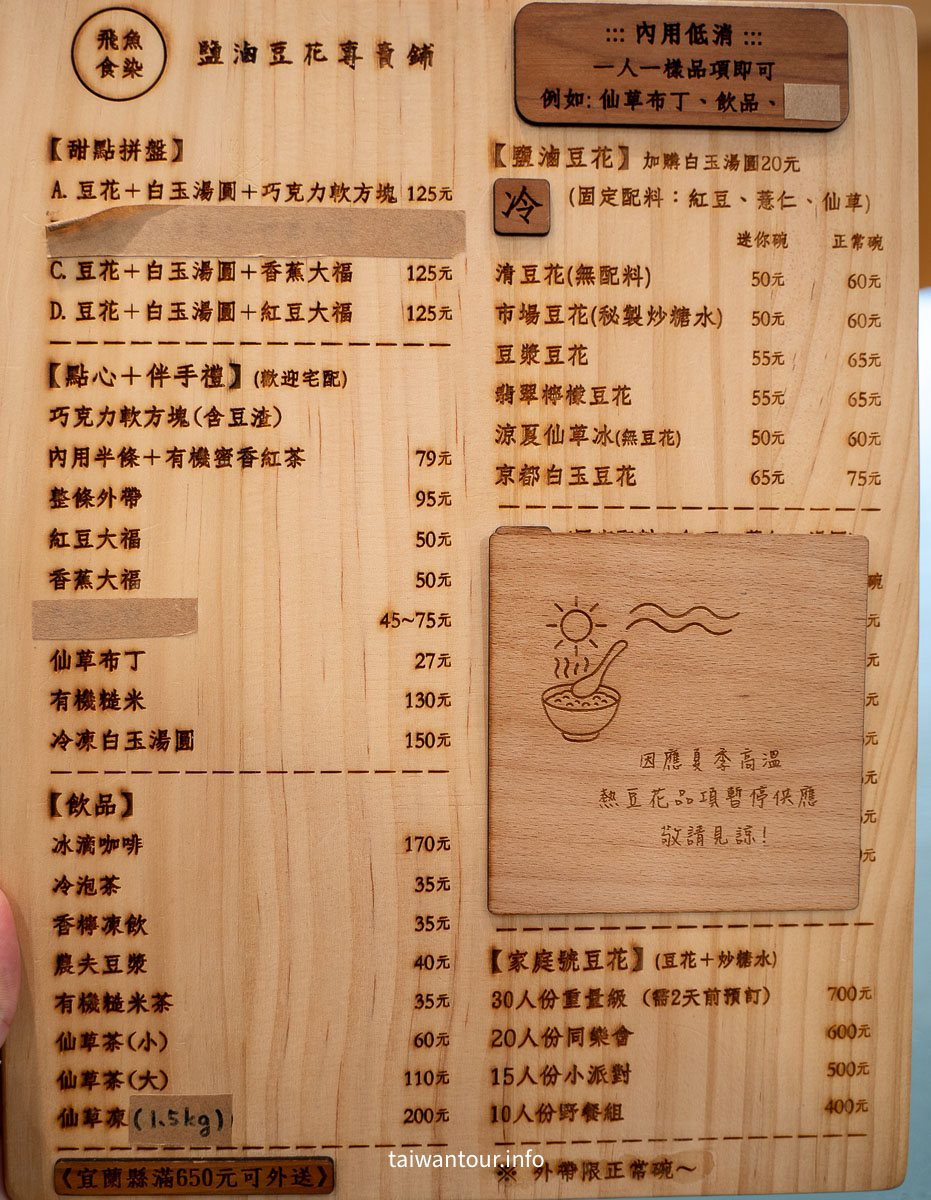 飛魚
食染
鹽滷豆花專賣鋪
::: 內用低消 :::
一人一樣品項即可
例如: 仙草布丁、飲品、
【甜點拼盤】
A. 豆花＋白玉湯圓＋巧克力軟方塊 125元
C. 豆花＋白玉湯圓＋香蕉大福 125元
D. 豆花＋白玉湯圓＋紅豆大福 125元
【點心＋伴手禮】(歡迎宅配)
巧克力軟方塊(含豆渣)
內用半條＋有機蜜香紅茶 79元
整條外帶 95元
紅豆大福 50元
香蕉大福 50元
45~75元
仙草布丁 27元
有機糙米 130元
冷凍白玉湯圓 150元
【飲品】
冰滴咖啡 170元
冷泡茶 35元
香檸凍飲 35元
農夫豆漿 40元
有機糙米茶 35元
仙草茶(小) 60元
仙草茶(大) 110元
仙草凍(1.5kg) 200元
《宜蘭縣滿650元可外送》
【鹽滷豆花】加購白玉湯圓20元
冷 (固定配料：紅豆、薏仁、仙草)
迷你碗 正常碗
清豆花(無配料) 50元 60元
市場豆花(秘製炒糖水) 50元 60元
豆漿豆花 55元 65元
翡翠檸檬豆花 55元 65元
涼夏仙草冰(無豆花) 50元 60元
京都白玉豆花 65元 75元
因應夏季高溫
熱豆花品項暫停供應
敬請見諒!
【家庭號豆花】(豆花＋炒糖水)
30人份重量級 (需2天前預訂) 700元
20人份同樂會 600元
15人份小派對 500元
10人份野餐組 400元
※ 外帶限正常碗～
taiwantour.info